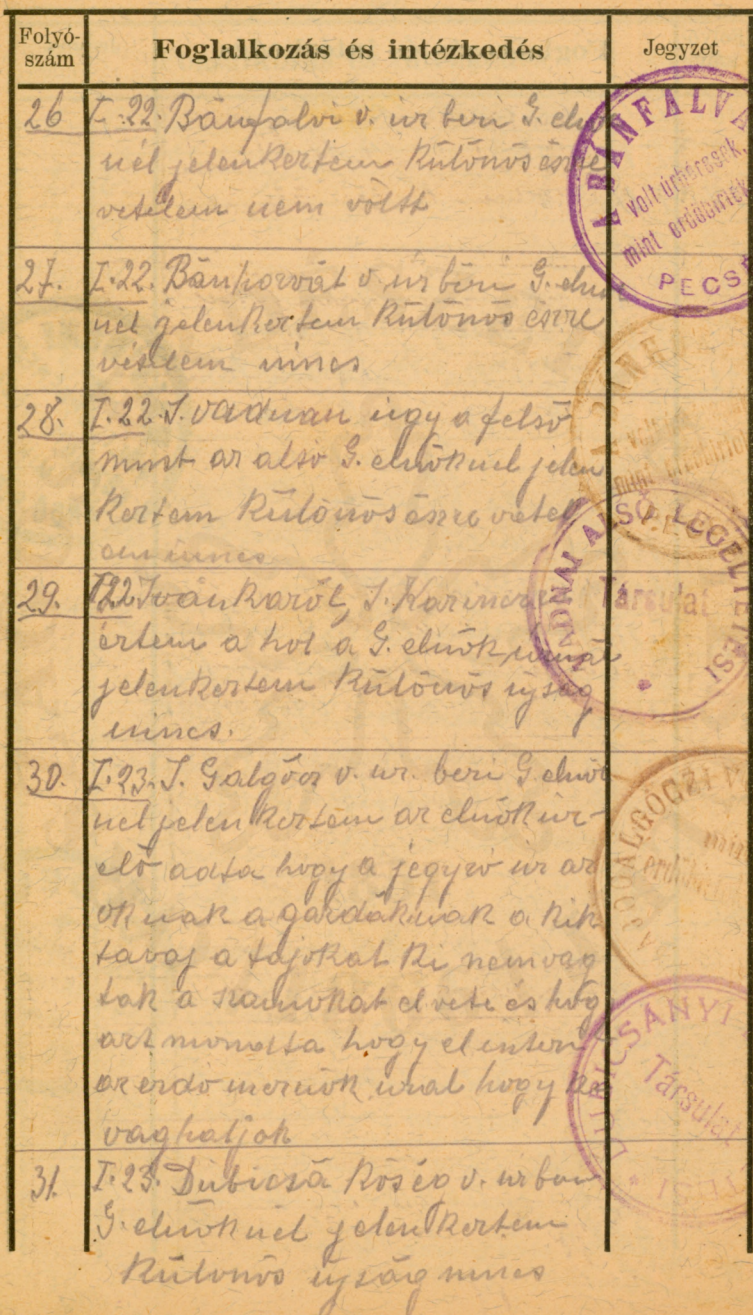 Folyó-
szám
Foglalkozás és intézkedés
Jegyzet
26 I-22. Bánfalvi v. ur beri G. elnök
nél jelenkertem Különös észre
vetelem nem voltt
A BÁNFALVA
volt úrbéresek,
mint erdőbirtok
PECS
27. I.22. Bánhorvát v. ur beri G. eln
nél jelenkertem Különös észre
vételem nincs
A BÁNHO
volt
mint erdőbirtok
28. I.22. S. vadnan ugy a felső
mint az alsó G. elnöknél jelen
kertem Különös észre vetel
em nincs
VADNAI ALSÓ LEGELTETÉSI
Társulat
29. I.22 Iván Karól, S. Karincz
értem a hol a G. elnök urnál
jelenkertem Különös ujság
nincs.
30. I.23. S. Galgócz v. ur. beri G elnök
nél jelen kertem az elnök ur
elő adta hogy a jegyző ur az
oknak a gazdáknak a kik
tavaj a tujokat ki nem vag
tak a szamokat el vete és hog
azt mondta hogy el inten
az erdő mernök ural hogy ki
vaghatjok
SAJÓGALGÓCZI V
erdőbirtok
31. I.23. Dubicsá Község v. ur beri
G. elnöknél jelen kertem
Különös ujság nincs
DUBICSÁNYI
Társulat